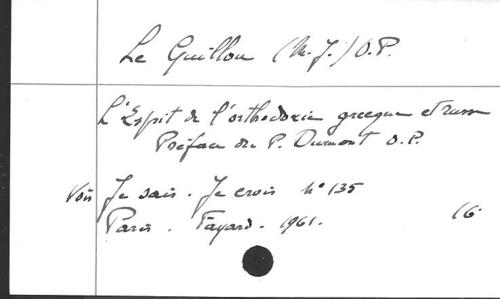 Le Guillou (M. J.) O. P.
L'Esprit de l'orthodoxie grecque et russe
Préface du P. Dumont O. P.
Voir Je sais. Je crois n° 135
Paris. Fayard. 1961. 16